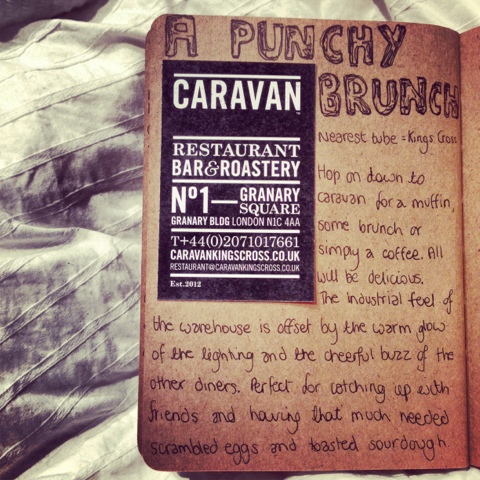 A PUNCHY
BRUNCH
CARAVAN
RESTAURANT
BAR & ROASTERY
Nº1 — GRANARY
SQUARE
GRANARY BLDG LONDON N1C 4AA
T+44(0)2071017661
CARAVANKINGSCROSS.CO.UK
RESTAURANT@CARAVANKINGSCROSS.CO.UK
Est.2012
Nearest tube = Kings Cross
Hop on down to
caravan for a muffin,
some brunch or
simply a coffee. All
will be delicious.
The industrial feel of
the warehouse is offset by the warm glow
of the lighting and the cheerful buzz of the
other diners. Perfect for catching up with
friends and having that much needed
scrambled eggs and toasted sourdough.